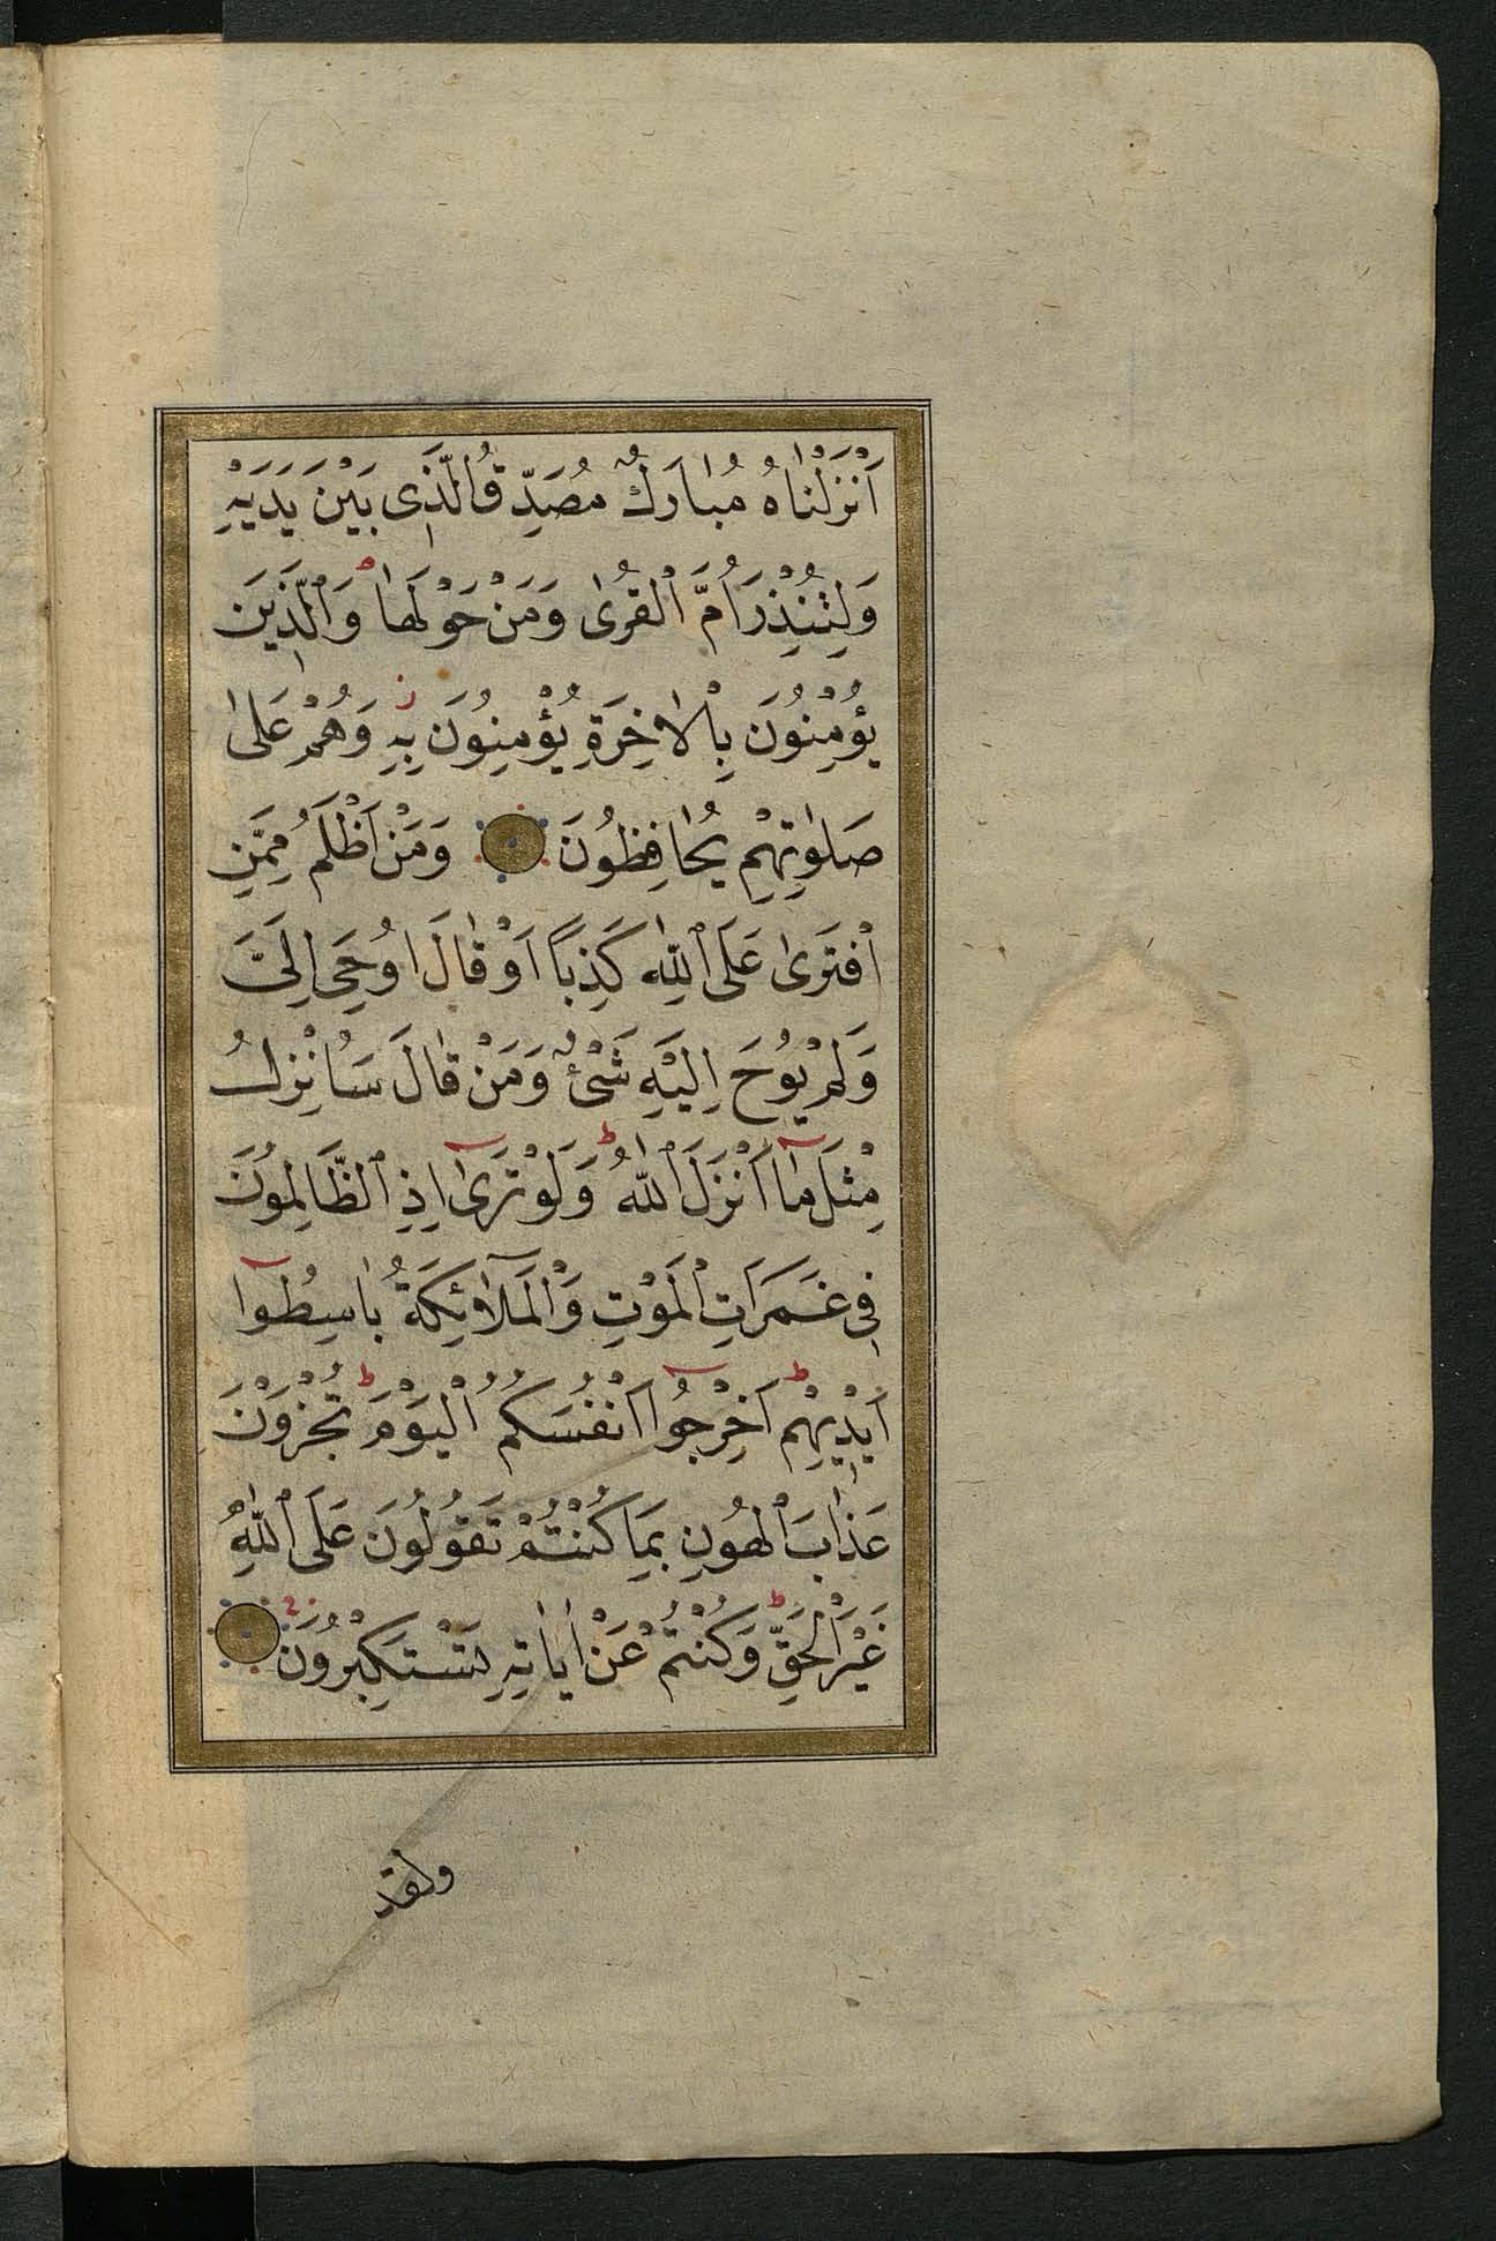 اَنْزَلْنَاهُ مُبَارَكٌ مُصَدِّقُ الَّذِى بَيْنَ يَدَيْهِ
وَلِتُنْذِرَ اُمَّ ٱلْقُرٰى وَمَنْ حَوْلَهَا ۘ وَٱلَّذِينَ
يُؤْمِنُونَ بِالْاٰخِرَةِ يُؤْمِنُونَ بِهِ ز وَهُمْ عَلٰى
صَلٰوتِهِمْ يُحَافِظُونَ وَمَنْ اَظْلَمُ مِمَّنِ
ٱفْتَرٰى عَلَى ٱللّٰهِ كَذِبًا اَوْ قَالَ اُوحِىَ اِلَىَّ
وَلَمْ يُوحَ اِلَيْهِ شَىْءٌ وَمَنْ قَالَ سَاُنْزِلُ
مِثْلَ مَٓا اَنْزَلَ ٱللّٰهُ ط وَلَوْ تَرٰٓى اِذِ ٱلظَّالِمُونَ
فِى غَمَرَاتِ ٱلْمَوْتِ وَٱلْمَلٰٓئِكَةُ بَاسِطُوٓا
اَيْدِيهِمْ ط اَخْرِجُوٓا اَنْفُسَكُمُ ٱلْيَوْمَ ط تُجْزَوْنَ
عَذَابَ ٱلْهُونِ بِمَا كُنْتُمْ تَقُولُونَ عَلَى ٱللّٰهِ
غَيْرَ ٱلْحَقِّ ط وَكُنْتُمْ عَنْ اٰيَاتِهِ تَسْتَكْبِرُونَ
ولقد